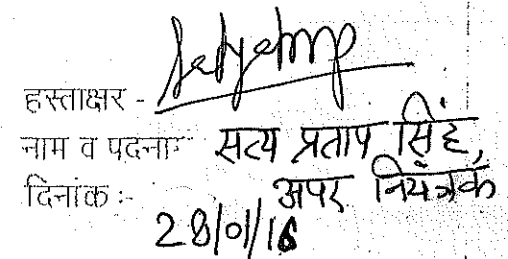 हस्ताक्षर -
नाम व पदनाम सत्य प्रताप सिंह,
अपर नियंत्रक
दिनांक :-
28/01/16